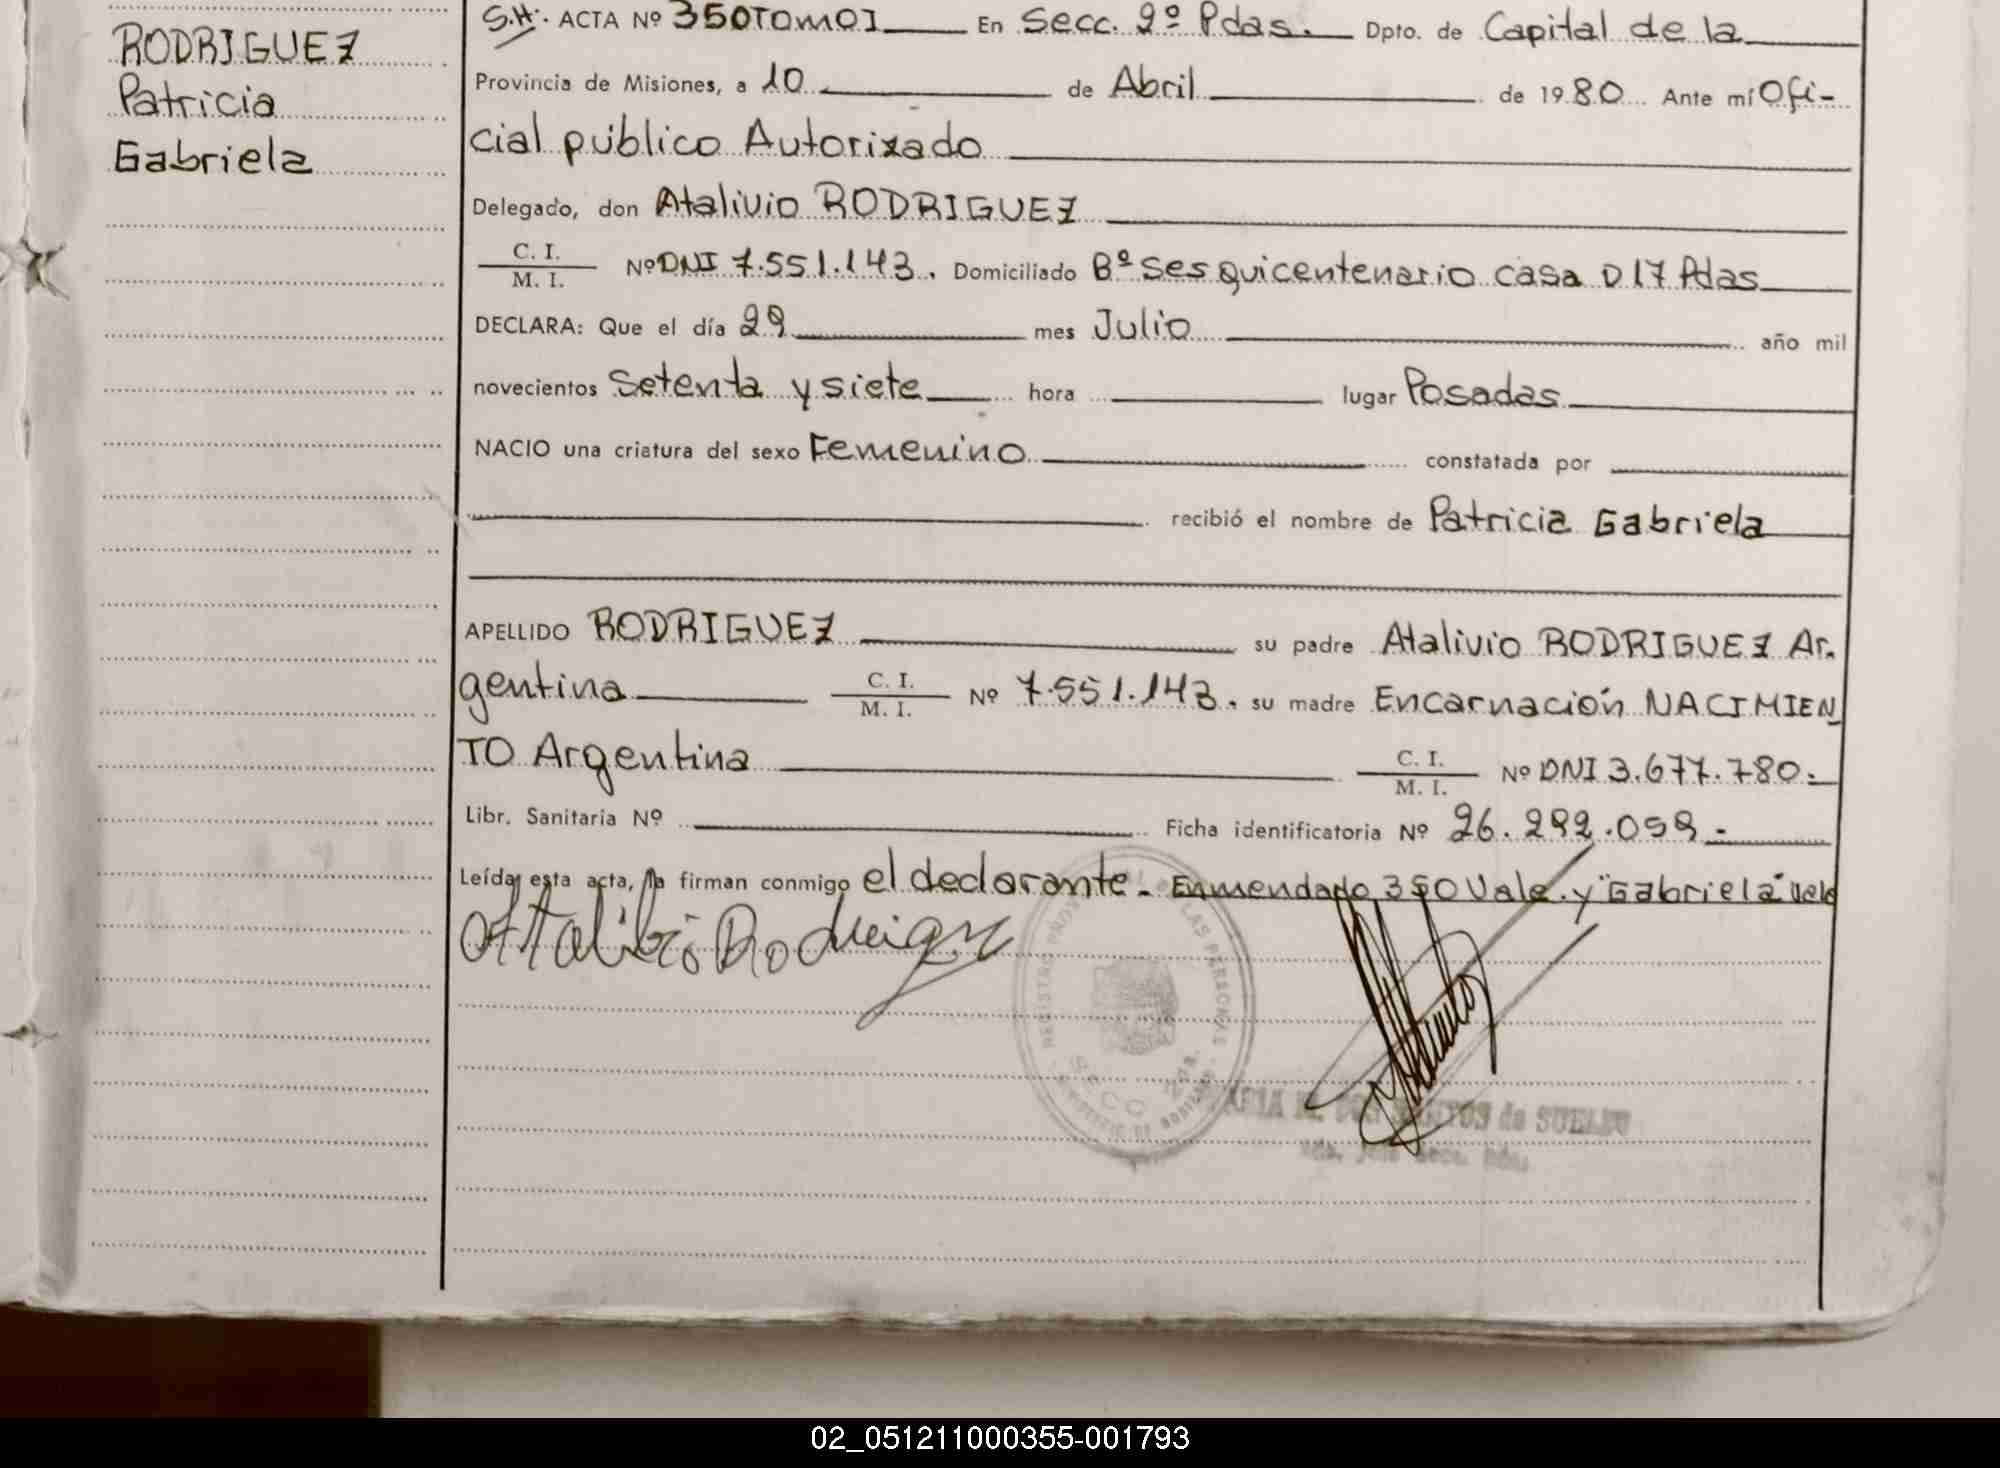 RODRIGUEZ
Patricia
Gabriela
S.H. ACTA Nº 350 Tomo I En Secc. 2º Pdas. Dpto. de Capital de la
Provincia de Misiones, a 10 de Abril de 1980 Ante mí Ofi-
cial público Autorizado
Delegado, don Atalivio RODRIGUEZ
C. I.
M. I. Nº DNI 7.551.143. Domiciliado Bº Sesquicentenario casa D 17 Pdas
DECLARA: Que el día 29 mes Julio año mil
novecientos Setenta y siete hora lugar Posadas
NACIO una criatura del sexo Femenino constatada por
recibió el nombre de Patricia Gabriela
APELLIDO RODRIGUEZ su padre Atalivio RODRIGUEZ Ar.
gentina C. I. M. I. Nº 7.551.143. su madre Encarnación NACIMIEN
TO Argentina C. I. M. I. Nº DNI 3.677.780.
Libr. Sanitaria Nº Ficha identificatoria Nº 26.292.059.-
Leída esta acta, la firman conmigo el declarante. Enmendado 350 Vale. y "Gabriela" Vale
Atalibio Rodriguez
REGISTRO DE LAS PERSONAS
de SUELDO
02_051211000355-001793